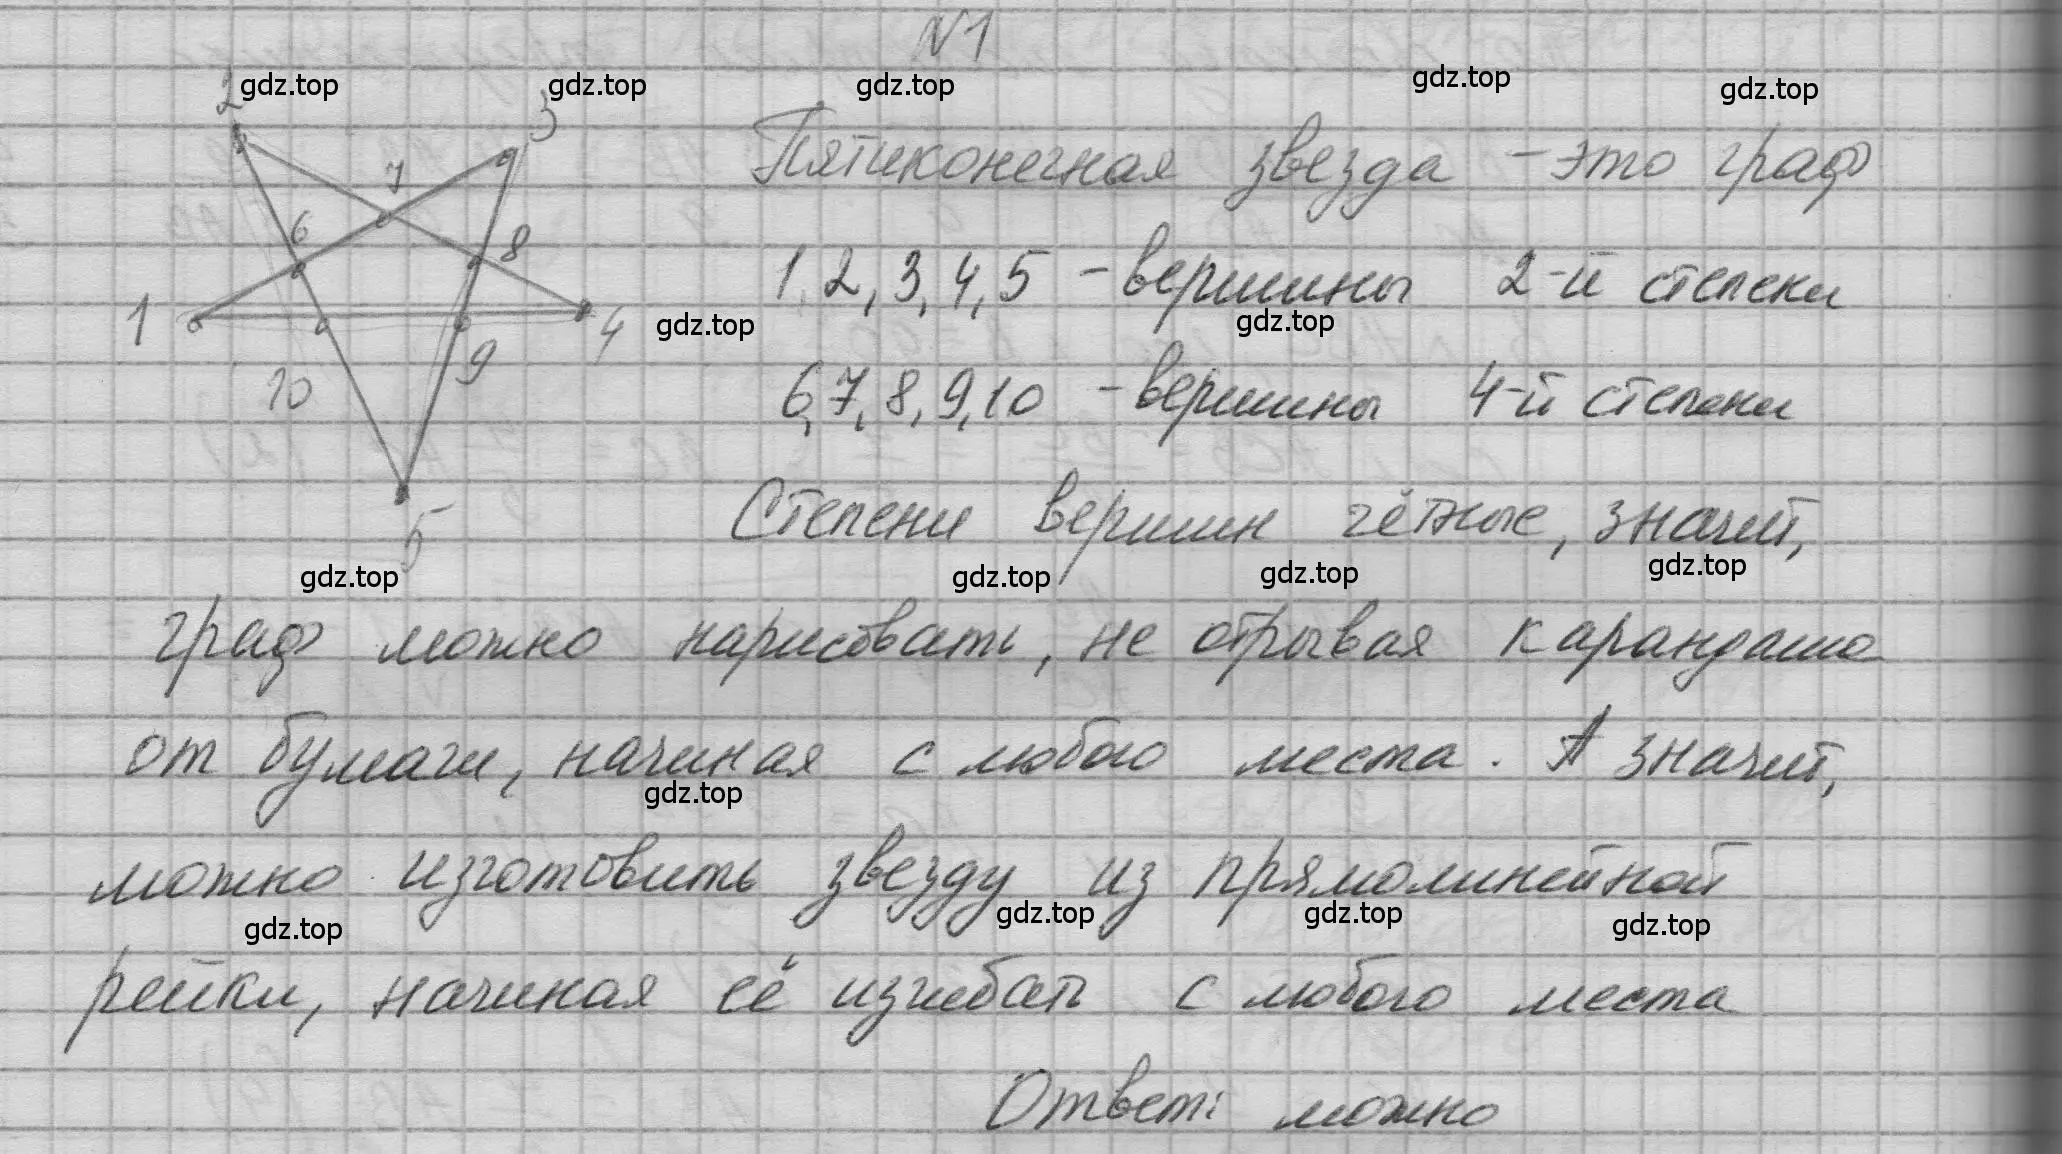 №1
gdz.top gdz.top gdz.top gdz.top gdz.top
2 3
Пятиконечная звезда - это граф
7
6 8
1,2,3,4,5 - вершины 2-й степени
1 4 gdz.top gdz.top
10 9
6,7,8,9,10 - вершины 4-й степени
5
Степени вершин чётные, значит,
gdz.top gdz.top gdz.top gdz.top
граф можно нарисовать, не отрывая карандаша
от бумаги, начиная с любого места. А значит,
gdz.top
можно изготовить звезду из прямолинейной
gdz.top gdz.top gdz.top gdz.top
рейки, начиная её изгибать с любого места
Ответ: можно